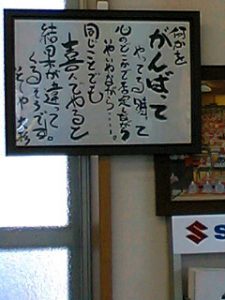 何かを
がんばって
やってる時って
心のどこかで否定しながら
やいやながら……。
同じことでも
喜んでやると
結果が違って。
くるそうです。
S